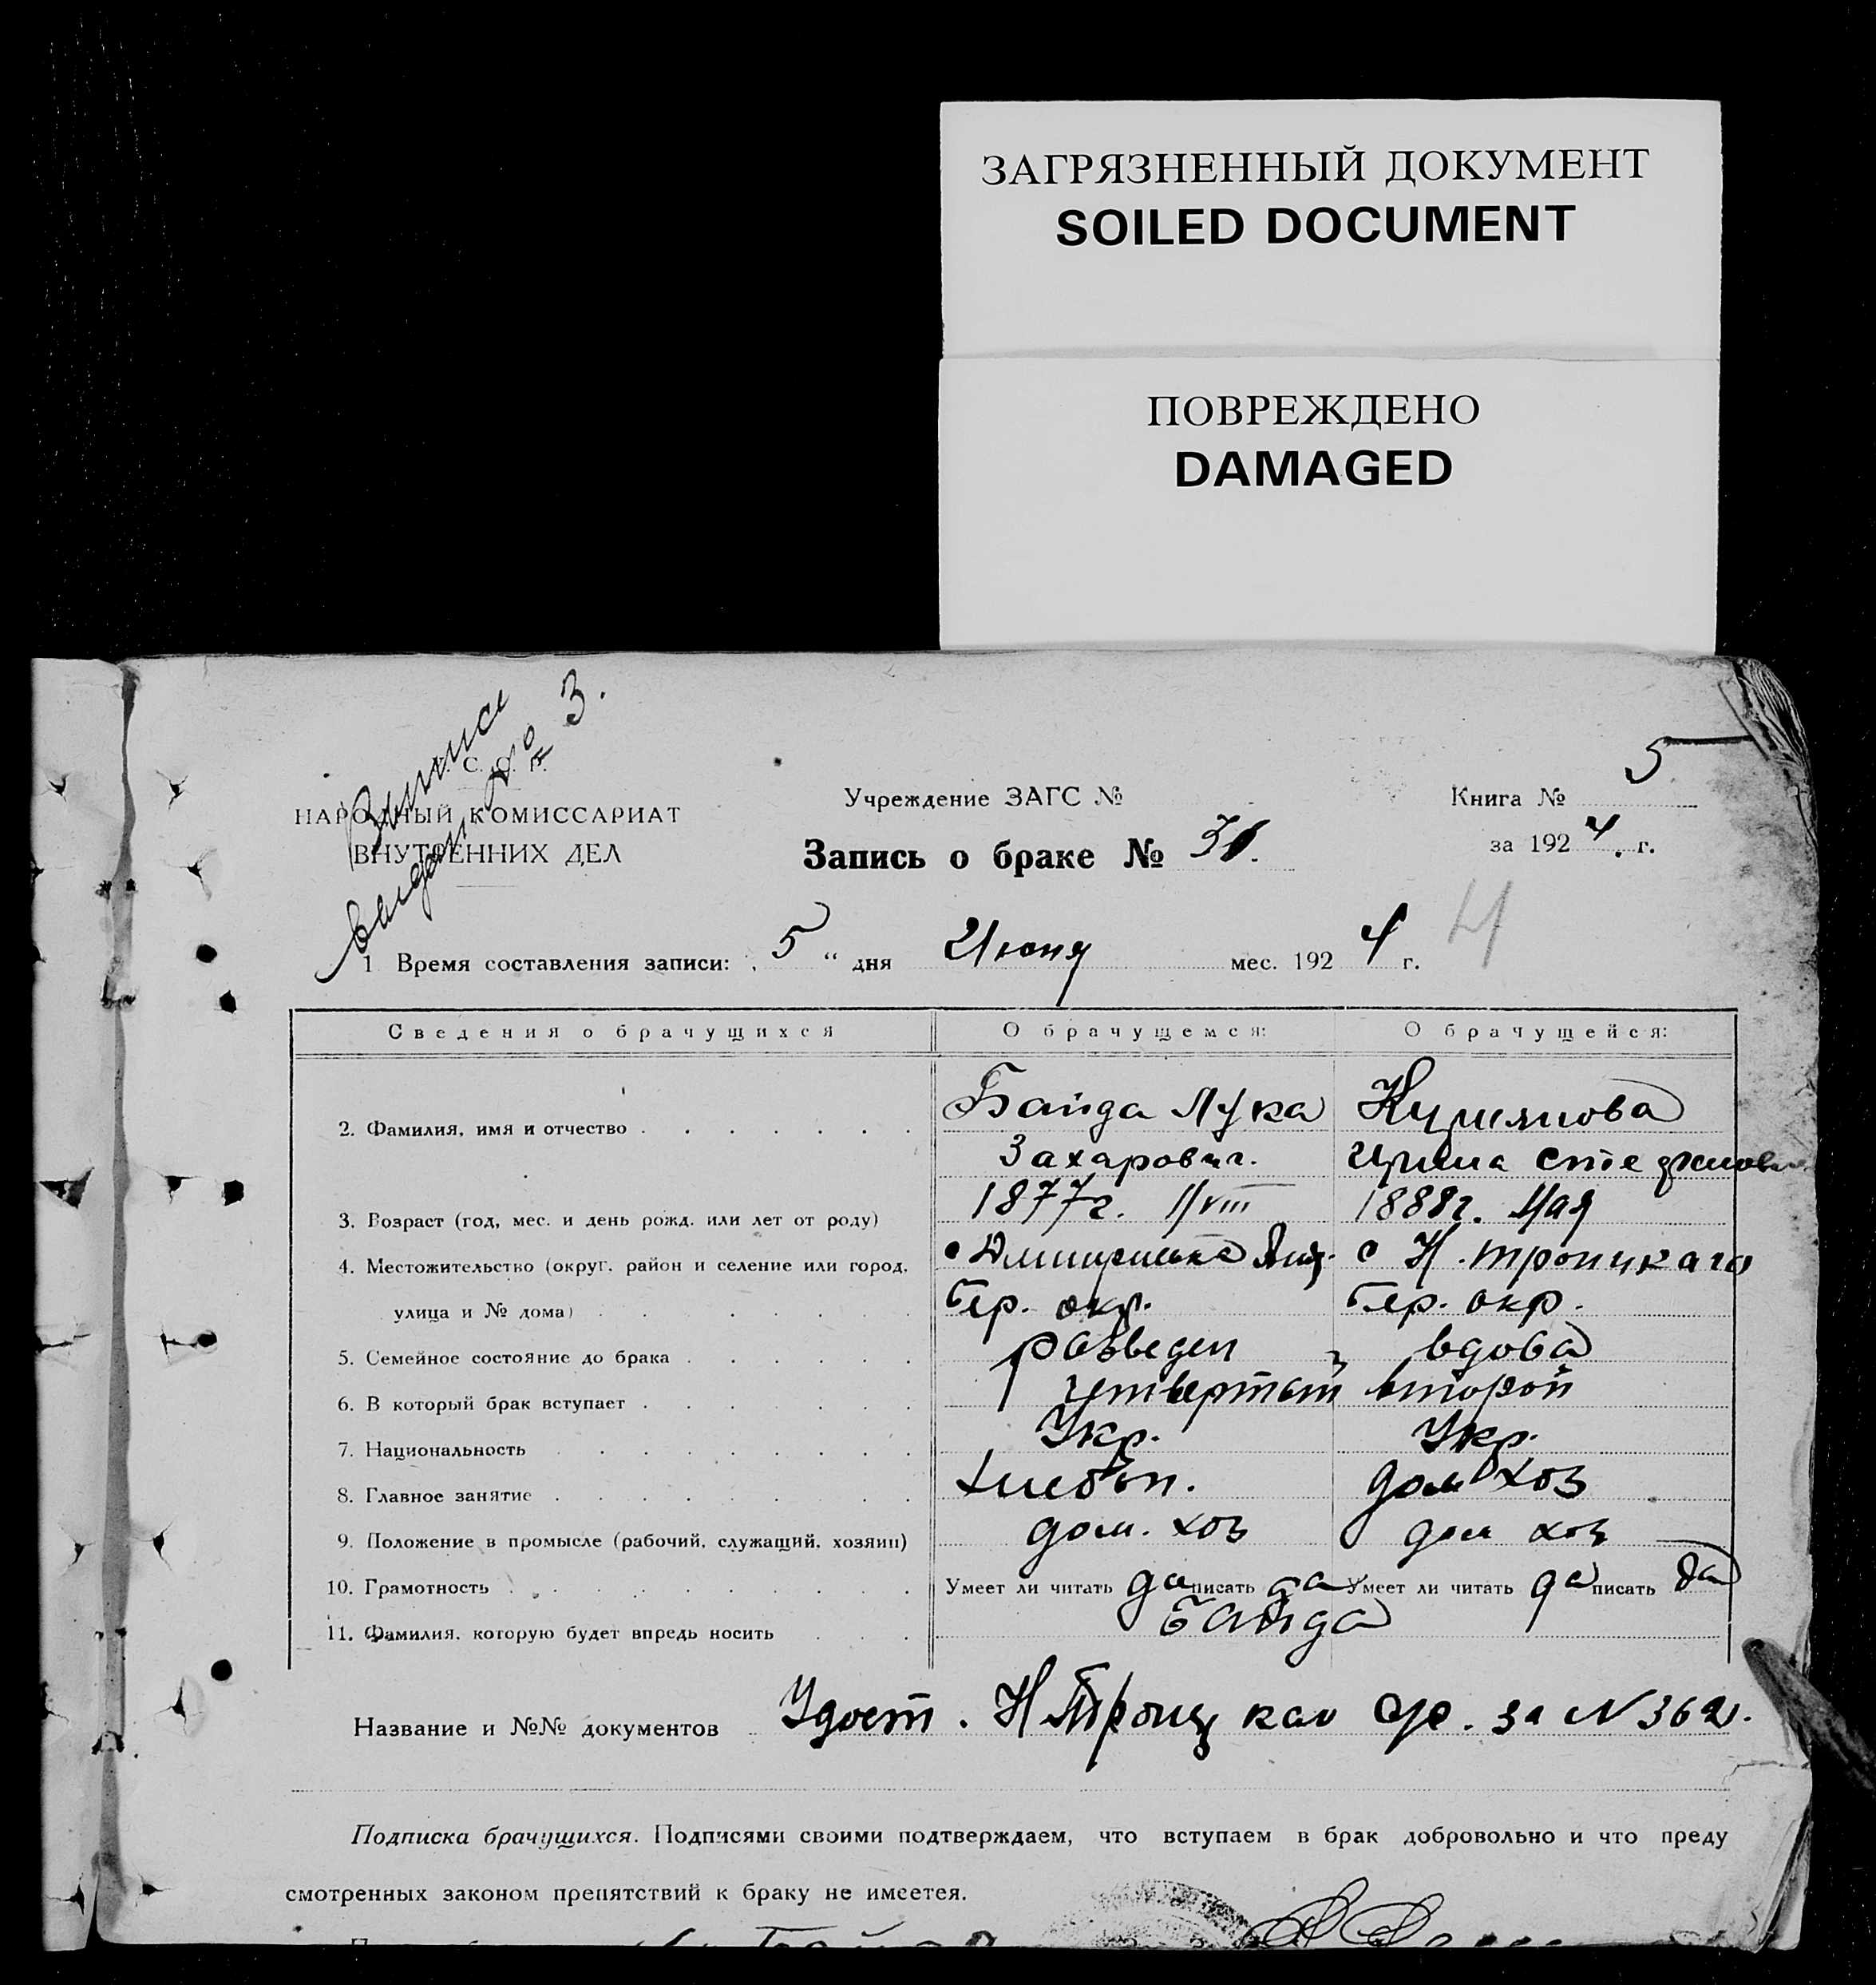 ЗАГРЯЗНЕННЫЙ ДОКУМЕНТ
SOILED DOCUMENT
ПОВРЕЖДЕНО
DAMAGED
Выпись
выдан № 3.
С. С. Р.
НАРОДНЫЙ КОМИССАРИАТ
ВНУТРЕННИХ ДЕЛ
Учреждение ЗАГС №
Запись о браке №
Книга № 5
за 1924 г.
4
1 Время составления записи: 5 " дня Июня мес. 1924 г.
Сведения о брачущихся О брачущемся: О брачущейся:
2. Фамилия, имя и отчество Байда Лука
Захарович. Ирина
3. Возраст (год, мес. и день рожд. или лет от роду) 1877г. 1888г. Мая
4. Местожительство (округ, район и селение или город, с с Н. Троицкаго
улица и № дома) Бер. окр. Бер. окр.
5. Семейное состояние до брака разведен вдова
6. В который брак вступает четвертый второй
7. Национальность Укр. Укр.
8. Главное занятие Хлебоп. дом хоз
9. Положение в промысле (рабочий, служащий, хозяин) дом. хоз дом хоз
10. Грамотность Умеет ли читать да писать да Умеет ли читать да писать да
11. Фамилия, которую будет впредь носить Байда
Название и №№ документов Удост. Н Троиц за N 362.
Подписка брачущихся. Подписями своими подтверждаем, что вступаем в брак добровольно и что преду
смотренных законом препятствий к браку не имеетея.